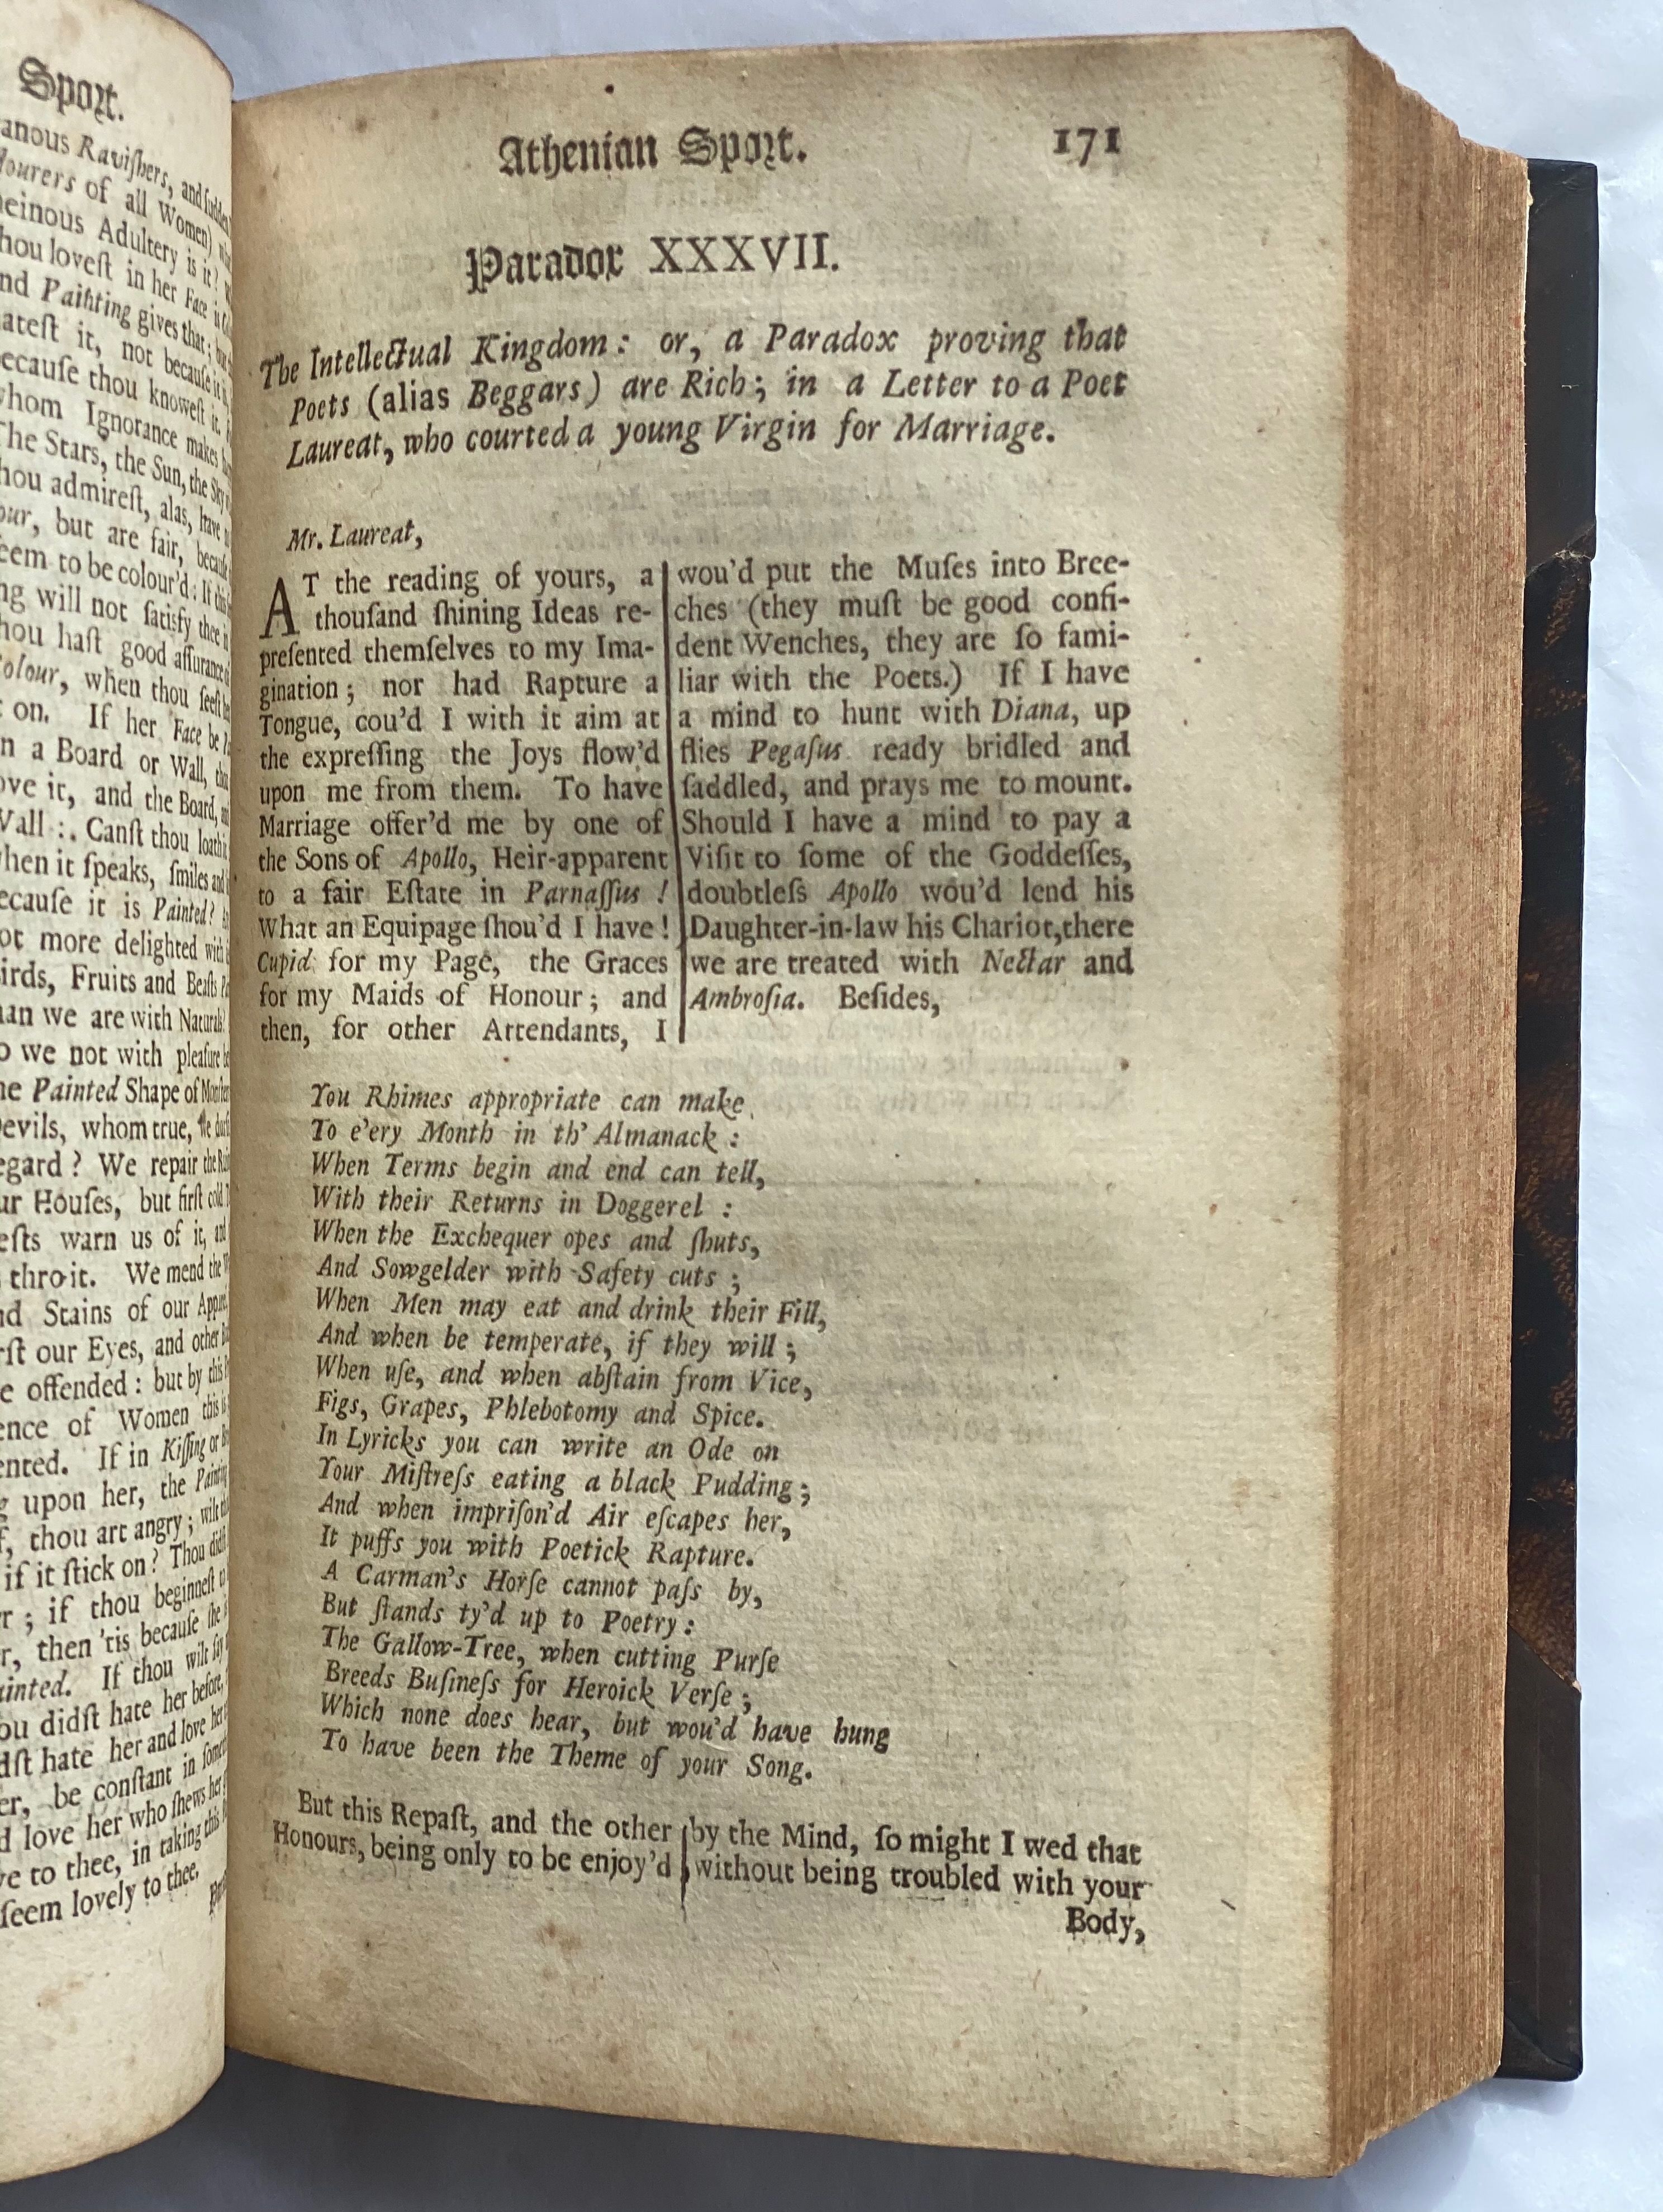 Sport.
Raviſhers, and
of all Women)
Adultery is it?
loveſt in her Face is
Painting gives that;
it, not becauſe it is,
thou knoweſt it.
Ignorance makes
The Stars, the Sun, the Sky
admireſt, alas, have
but are fair, becauſe
to be colour'd: If this
will not ſatisfy thee
haſt good aſſurance of
when thou ſeeſt
on. If her Face be
a Board or Wall,
it, and the Board,
Canſt thou
it ſpeaks, ſmiles and
it is Painted?
more delighted with
Fruits and Beaſts
we are with
we not with pleaſure
Painted Shape of
whom true,
We repair the
Houſes, but firſt cold
warn us of it, and
We mend the
Stains of our
our Eyes, and other
offended: but by this
of Women this is
If in Kiſſing or
upon her, the
thou art angry; wilt
if it ſtick on? Thou didſt
if thou beginneſt
then 'tis becauſe ſhe
If thou wilt ſay
didſt hate her before,
hate her and love her
be conſtant in
love her who ſhews her
to thee, in taking this
ſeem lovely to thee.
Athenian Sport. 171
Paradox XXXVII.
The Intellectual Kingdom: or, a Paradox proving that
Poets (alias Beggars) are Rich; in a Letter to a Poet
Laureat, who courted a young Virgin for Marriage.
Mr. Laureat,
AT the reading of yours, a
thouſand ſhining Ideas re-
preſented themſelves to my Ima-
gination; nor had Rapture a
Tongue, cou'd I with it aim at
the expreſſing the Joys flow'd
upon me from them. To have
Marriage offer'd me by one of
the Sons of Apollo, Heir-apparent
to a fair Eſtate in Parnaſſus!
What an Equipage ſhou'd I have!
Cupid for my Page, the Graces
for my Maids of Honour; and
then, for other Attendants, I
wou'd put the Muſes into Bree-
ches (they muſt be good confi-
dent Wenches, they are ſo fami-
liar with the Poets.) If I have
a mind to hunt with Diana, up
flies Pegaſus ready bridled and
ſaddled, and prays me to mount.
Should I have a mind to pay a
Viſit to ſome of the Goddeſſes,
doubtleſs Apollo wou'd lend his
Daughter-in-law his Chariot, there
we are treated with Nectar and
Ambroſia. Beſides,
You Rhimes appropriate can make
To e'ery Month in th' Almanack:
When Terms begin and end can tell,
With their Returns in Doggerel:
When the Exchequer opes and ſhuts,
And Sowgelder with Safety cuts;
When Men may eat and drink their Fill,
And when be temperate, if they will;
When uſe, and when abſtain from Vice,
Figs, Grapes, Phlebotomy and Spice.
In Lyricks you can write an Ode on
Your Miſtreſs eating a black Pudding;
And when impriſon'd Air eſcapes her,
It puffs you with Poetick Rapture.
A Carman's Horſe cannot paſs by,
But ſtands ty'd up to Poetry:
The Gallow-Tree, when cutting Purſe
Breeds Buſineſs for Heroick Verſe;
Which none does hear, but wou'd have hung
To have been the Theme of your Song.
But this Repaſt, and the other
Honours, being only to be enjoy'd
by the Mind, ſo might I wed that
without being troubled with your
Body,